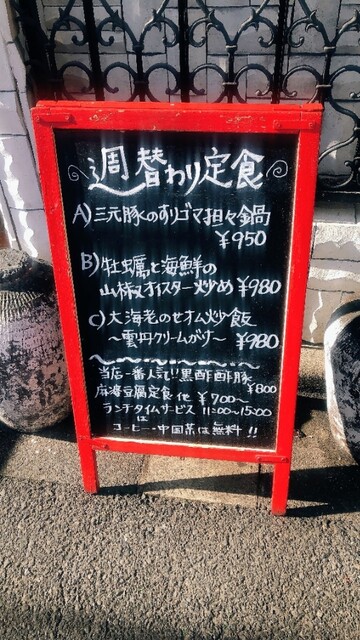 週替わり定食
A)三元豚のすりゴマ担々鍋
¥950
B)牡蠣と海鮮の
山椒オイスター炒め ¥980
C)大海老のセオム炒飯
〜雲丹クリームがけ〜 ¥980
当店一番人気!!黒酢酢豚
¥800
麻婆豆腐定食 他 ¥700〜
ランチタイムサービス 11:00〜15:00
は
コーヒー・中国茶は無料!!